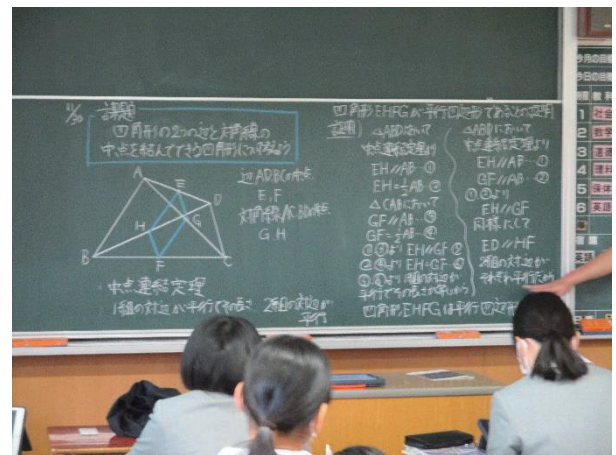 11/30 課題
四角形の2つの辺と対角線の
中点を結んでできる四角形について考えよう
A
E
D
H
G
B
F
C
辺AD,BCの中点
E,F
対角線AC,BDの中点
G,H
中点連結定理
1組の対辺が平行でその長さ
2組の対辺が
平行
四角形EHFGが平行四辺形であることの証明
証明
△ABDにおいて
中点連結定理より
EH//AB…①
EH=1/2AB…②
△CABにおいて
GF//AB…③
GF=1/2AB…④
①③よりEH//GF
②④よりEH=GF
1組の対辺が
平行でその長さが等しいから
△ABDにおいて
中点連結定理より
EH//AB…①
GF//AB…②
①②より
EH//GF
同様にして
ED//HF
2組の対辺が
それぞれ平行だから
四角形EHFGは平行四辺形
今月の目標
今日の目
教科
1 社会
2 数学
3 道徳
4 理科
5 保体
6 英語